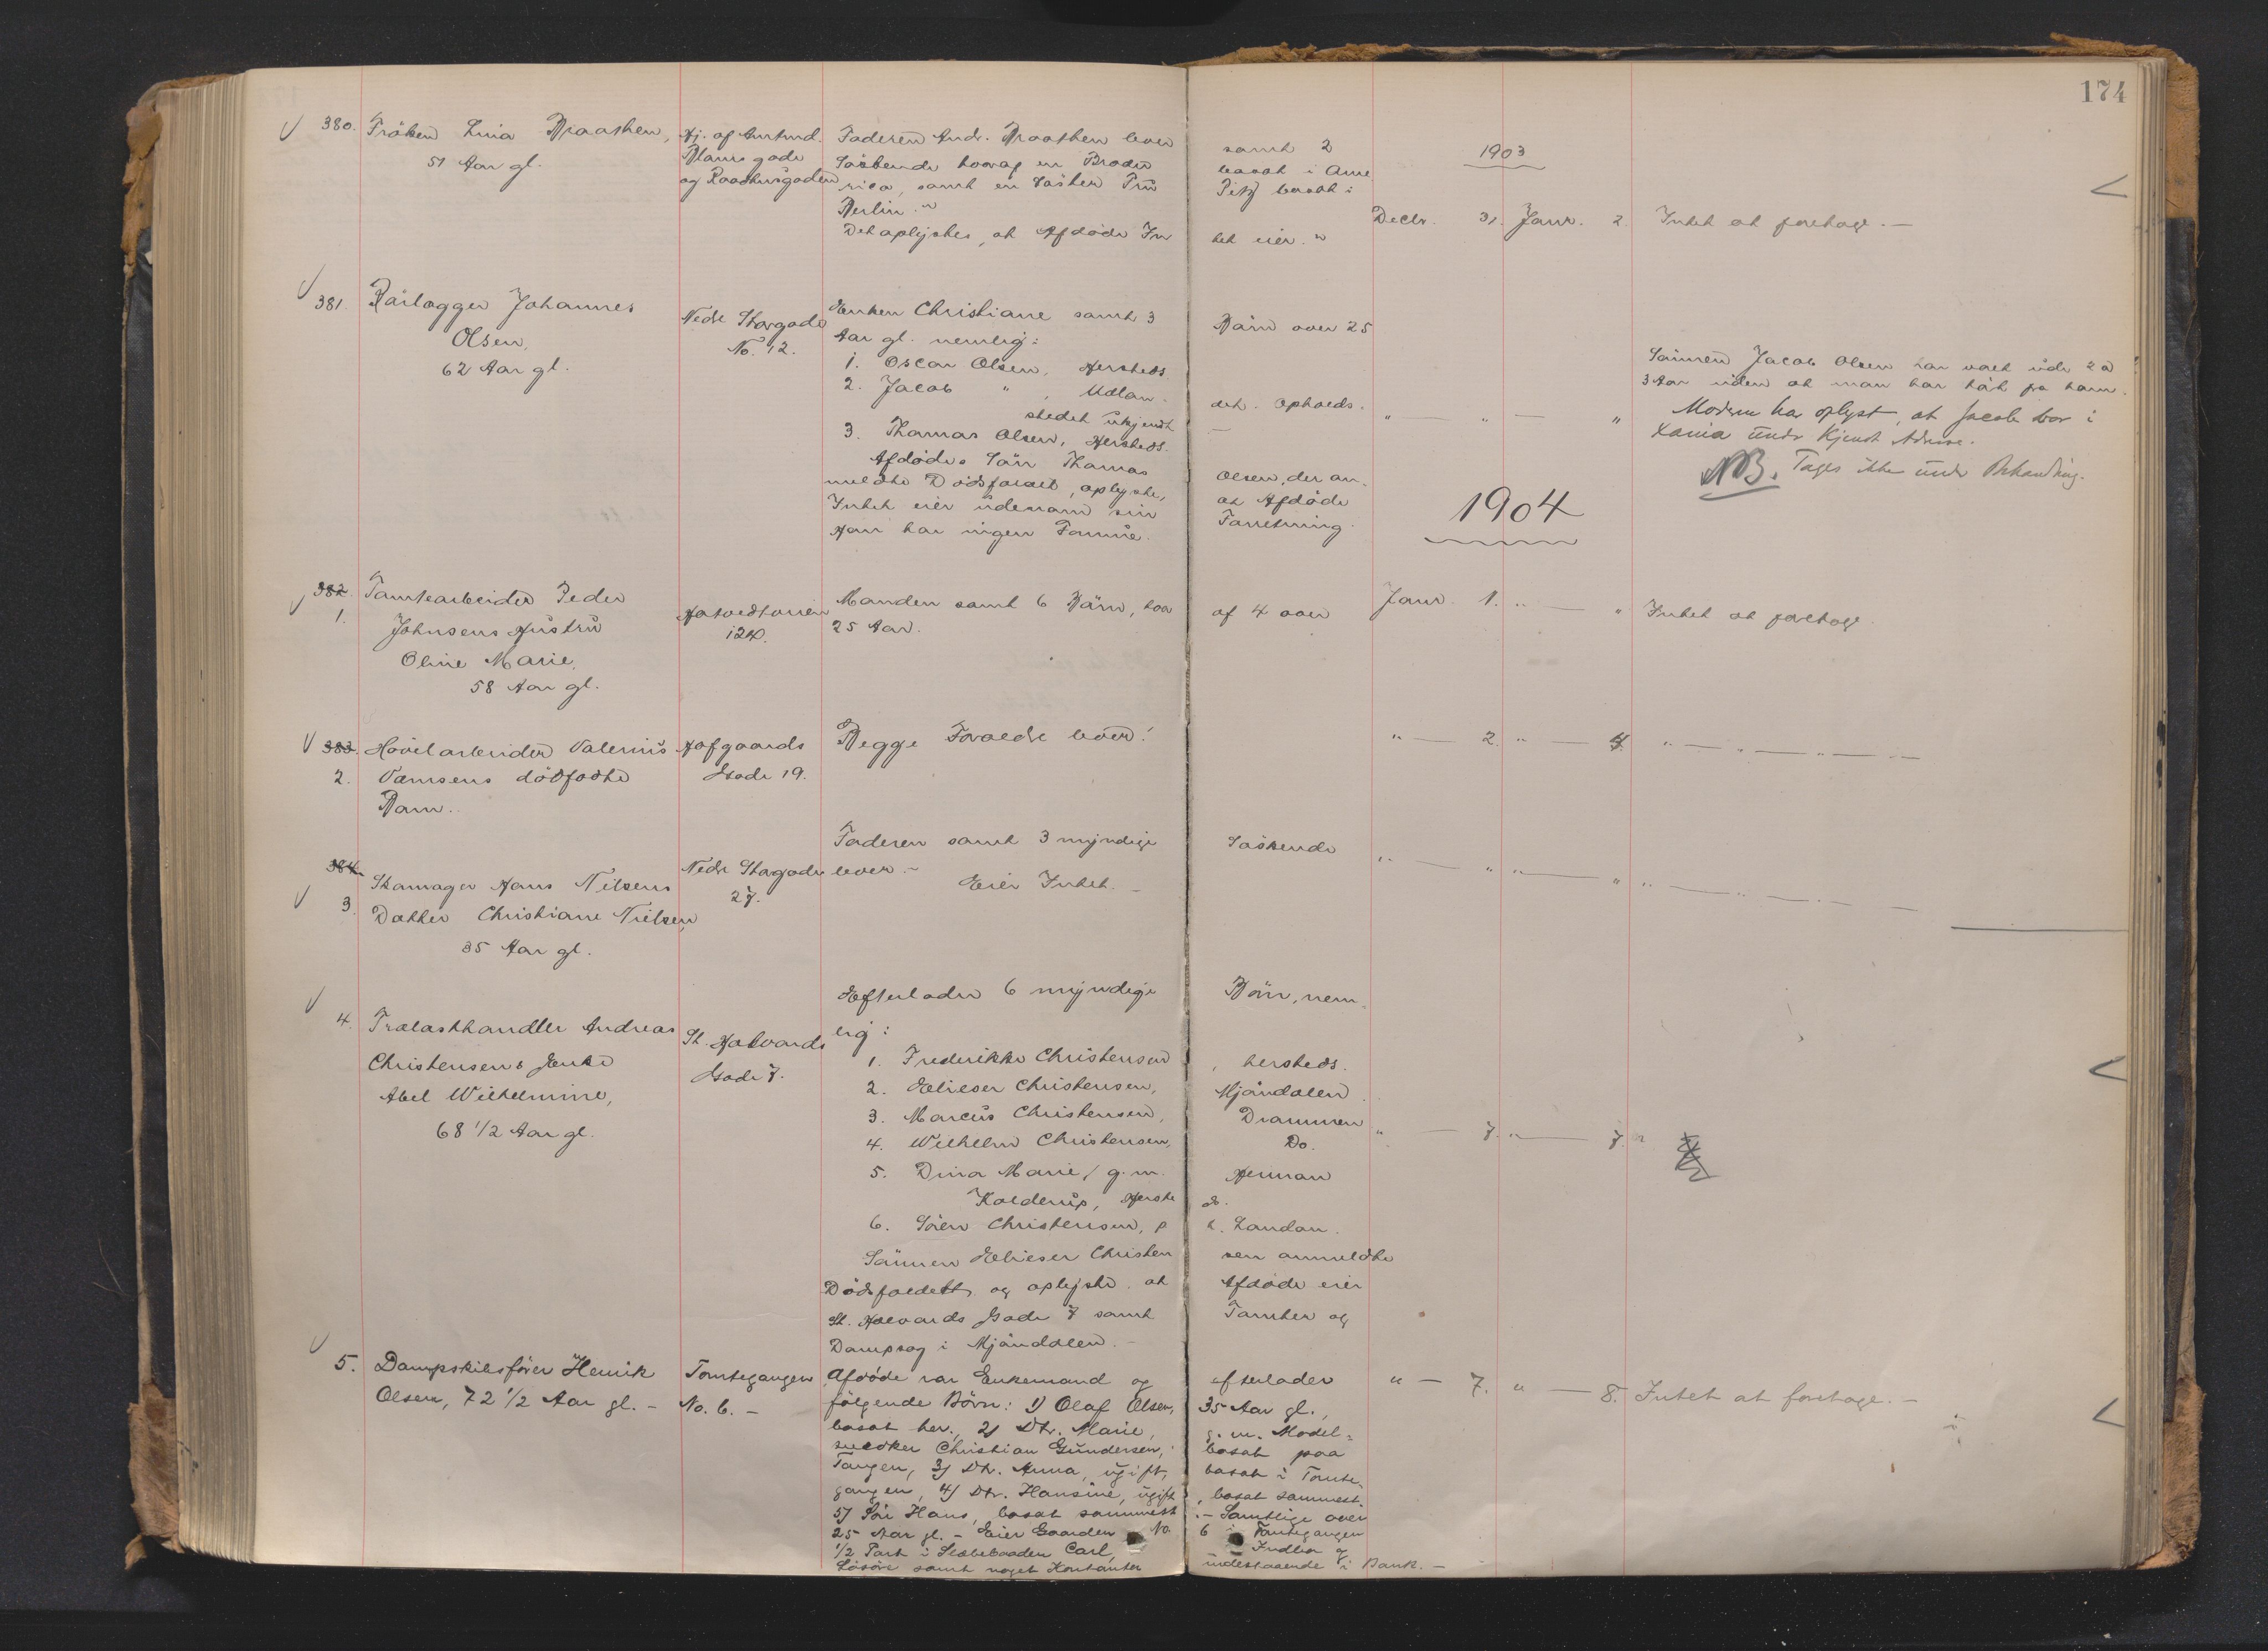 174
1903
380. Fröken Lina Braathen,
51 Aar gl.
Hj. af Amtmd.
Blams gade
og Raadhusgaden
Faderen Andr. Braathen lever samt 2
Söskende hvoraf en Broder bosat i Ame
rica, samt en Söster Fru Pitz bosat i
Berlin.
Det oplystes, at Afdöde In tet eier.
Decbr. 31. Janr. 2. Intet at foretage. —
381. Rörlægger Johannes
Olsen,
62 Aar gl.
Nedr Storgade
No. 12.
Enken Christiane samt 3 Börn over 25
Aar gl. nemlig:
1. Oscar Olsen, Hersteds.
2. Jacob " , Udlan- det. Opholds-
stedet ukjendt —
3. Thomas Olsen, Hersteds.
Afdödes Sön Thomas Olsen, der an-
meldte Dödsfaldet, oplyste, at Afdöde
Intet eier udenom sin Forretning.
Han har ingen Formue.
" — " — "
Sönnen Jacob Olsen har været ude 2 à
3 Aar uden at man har hört fra ham.
Moderen har oplyst, at Jacob bor i
Xania under Kjendt Adresse.
NB. Tages ikke under Behandling.
1904
382. Tomtearbeider Peder
1. Johnsens Hustru
Oline Marie,
58 Aar gl.
Havedtorien
124.
Manden samt 6 Börn, hvor af 4 over
25 Aar.
Janr. 1. " — " Intet at foretage
383. Hövelarbeider Valerius
2. Tomsens dödfödte
Barn.
Hofgaards
Gade 19.
Begge Forældre lever!
" — 2. " — 4. " — " — " — " —
384. Skomager Hans Nilsens
3. Datter Christiane Nielsen,
35 Aar gl.
Nedr Storgade
27.
Faderen samt 3 myndige Söskende
lever. —
Eier Intet. —
" — " " — " " — " — " —
4. Trælasthandler Andreas
Christensens Enke
Abel Wilhelmine,
68 1/2 Aar gl.
St. Halvards
Gade 7.
Efterlader 6 myndige Börn, nem-
lig:
1. Frederikke Christensen, hersteds.
2. Elieser Christensen, Mjöndalen.
3. Marcus Christensen, Drammen
4. Wilhelm Christensen, Do.
5. Dina Marie, g. m. Herman
Kolderup, Herste ds.
6. Sören Christensen, p. t. London.
Sönnen Elieser Christen sen anmeldte
Dödsfaldet og oplyste, at Afdöde eier
St. Halvards Gade 7 samt Tomter og
Dampsag i Mjöndalen. —
" — 7. " — 7. "
5. Dampskibsförer Henrik
Olsen, 72 1/2 Aar gl. —
Tomtegangen
No. 6. —
Afdöde var Enkemand og efterlader
fölgende Börn: 1) Olaf Olsen, 35 Aar gl.,
bosat her., 2) Dtr. Marie, g. m. Model-
snedker Christian Gundersen, bosat paa
Tangen, 3) Dtr. Anna, ugift, bosat i Tomte-
gangen, 4) Dtr. Hansine, ugift, bosat sammest.
5) Sön Hans, bosat sammest. — Samtlige over
25 Aar gl. — Eier Gaarden No. 6 i Tomtegangen
1/2 Part i Slæbebaaden Carl, Indbo og
Lösöre samt noget Kontanter indestaaende i Bank. —
" — 7. " — 8. Intet at foretage. —